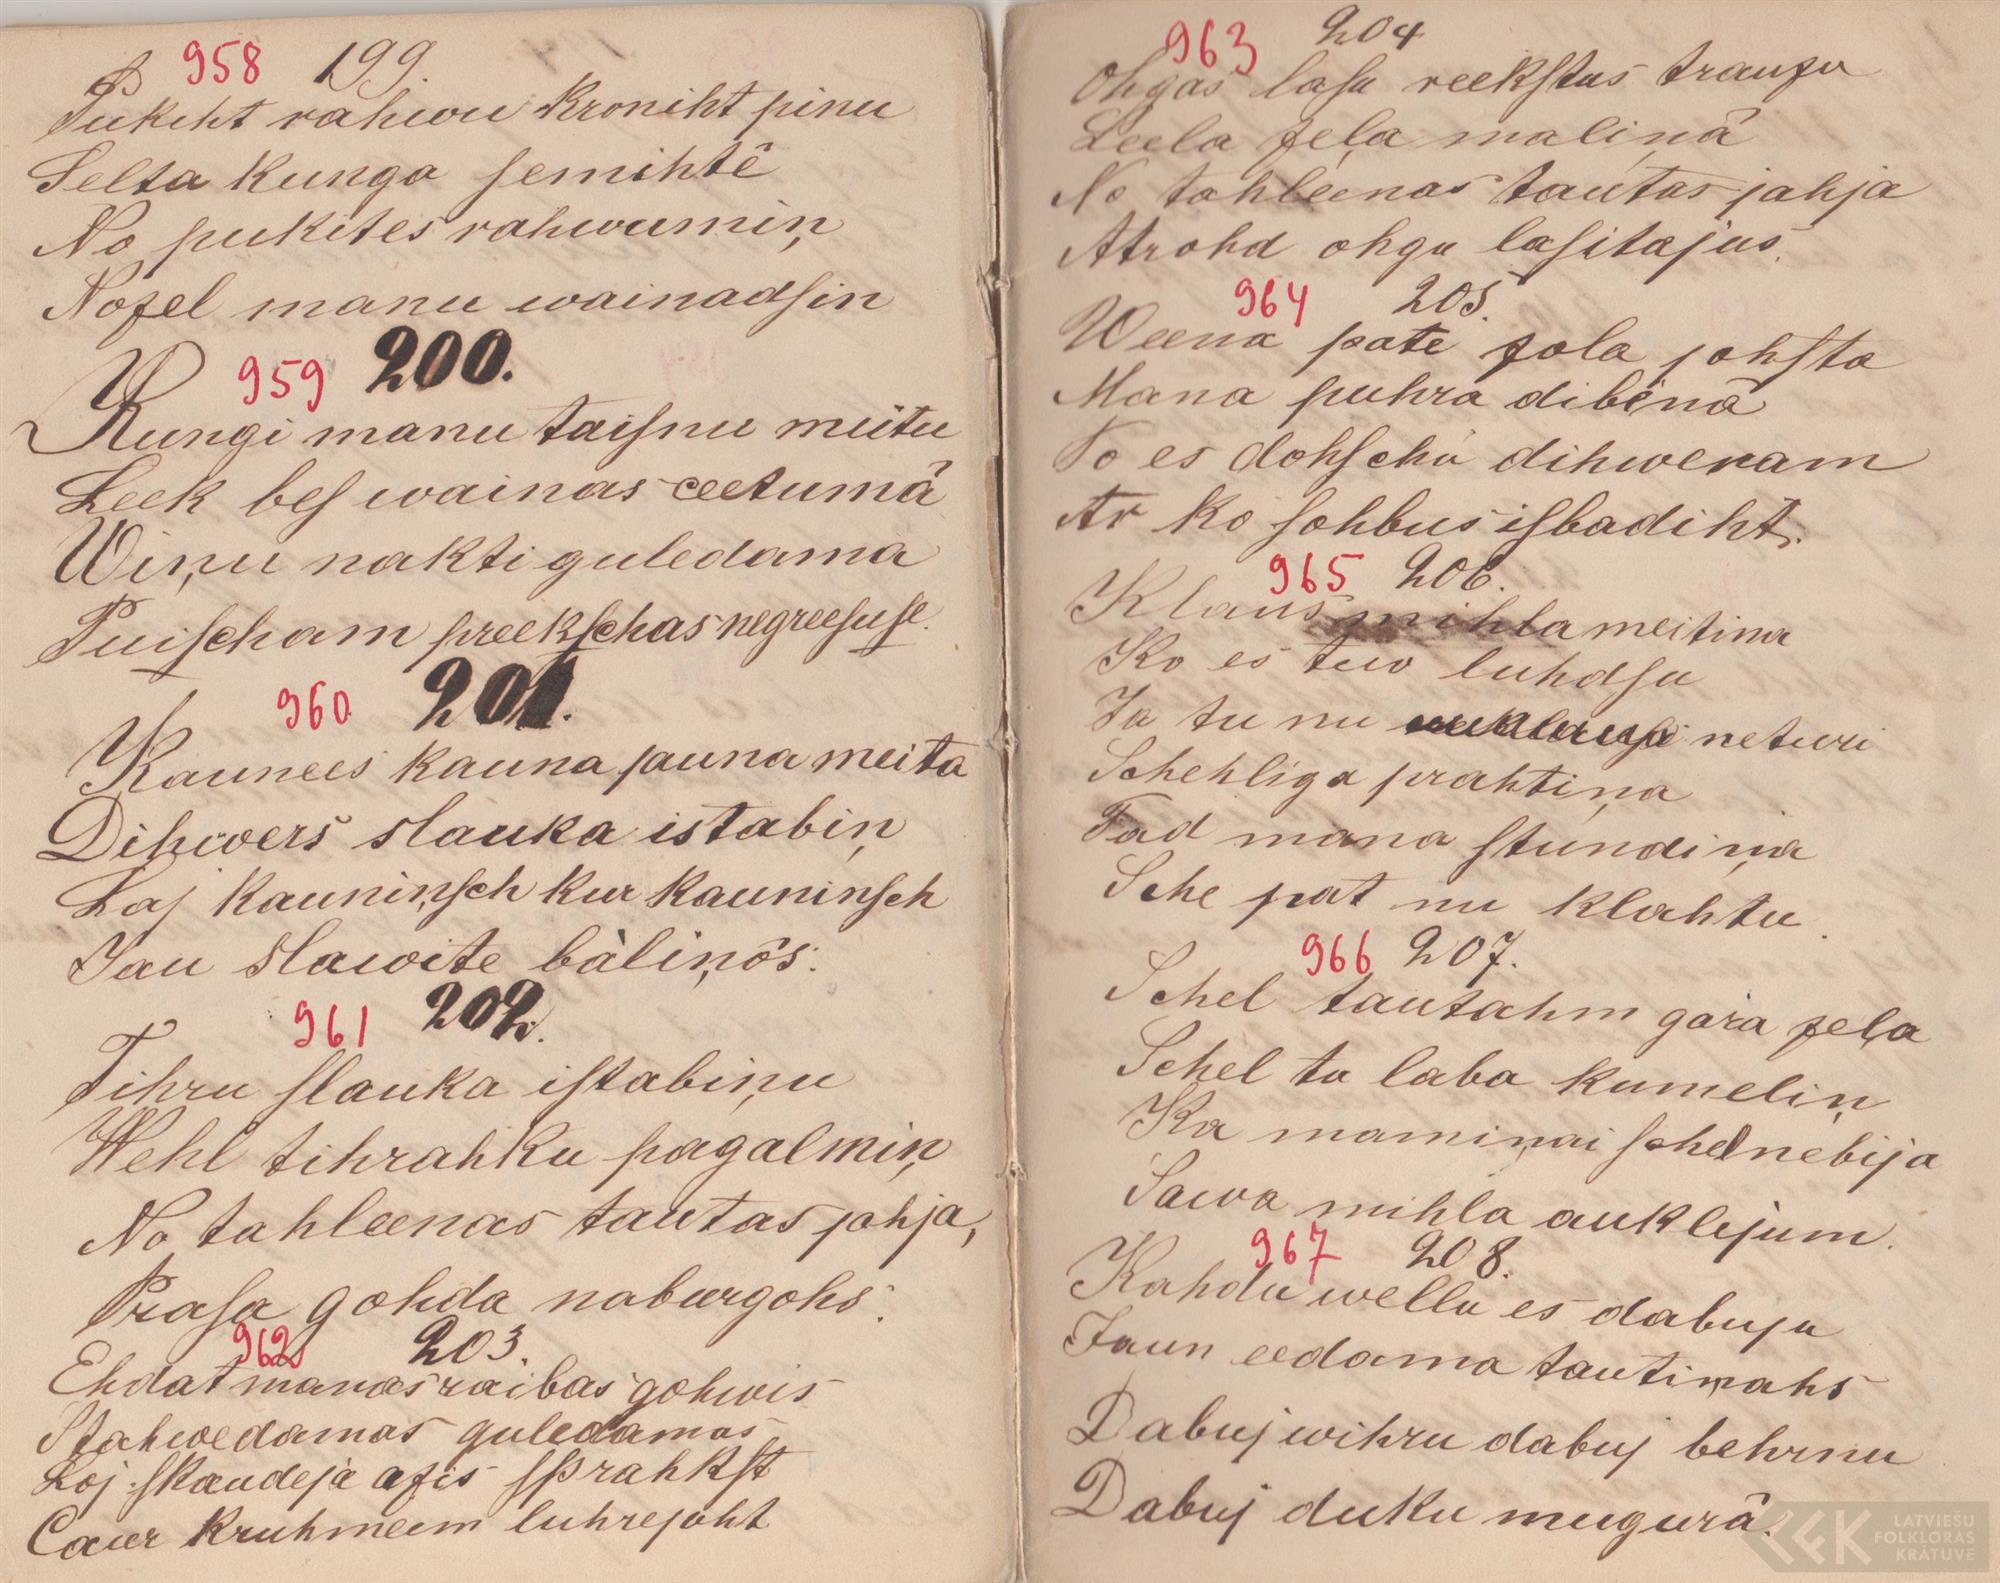 958 199.
Pukiht rahwu kroniht pinu
Selta kunga semihtê
No pukites rahwumiņ
Nozel manu wainadsin
959 200.
Kungi manu taisnu meitu
Leek bes wainas ceetumâ
Wiņu nakti guledama
Puischam preekschas negreesuse.
960 201.
Kaunees kauna jauna meita
Dihwers slauka istabiņ
Laj kauniņsch kur kauninsch
Jau slawite bàliņôs.
961 202.
Tihru slauka istabiņu
Wehl tihrahku pagalmiņ
No tahleenas tautas jahja,
Prasa gohda naburgohs.
962 203.
Ehdat manas raibas gohwis
Stahwedamas guledamas
Loj skaudeja azis sprahkst
Caur kruhmeem luhrejoht
963 204
Ohgas lasu reekstus trauzu
Leela zeļa maliņâ
No tahleenas tautas jahja
Atrohd ohgu lasitajus.
964 205.
Weena pate zola johsta
Mana puhra dibenâ
To es dohschu dihweram
Ar ko sohbus isbadiht.
965 206.
Klaus mihla meitina
Ko es tew luhdsu
Ja tu nu neturi
Schehliga prahtiņa
Tad mana stundiņa
Sche pat nu klahtu.
966 207.
Schel tautahm gara zeļa
Schel ta laba kumeliņ
Ka mamiņai schel nebija
Sawa mihla auklejum.
967 208.
Kahdu wellu es dabuju
Jaun eedama tautiņahs
Dabuj wihru dabuj behrnu
Dabuj duku mugurâ.
LATVIEŠU
FOLKLORAS
KRĀTUVE